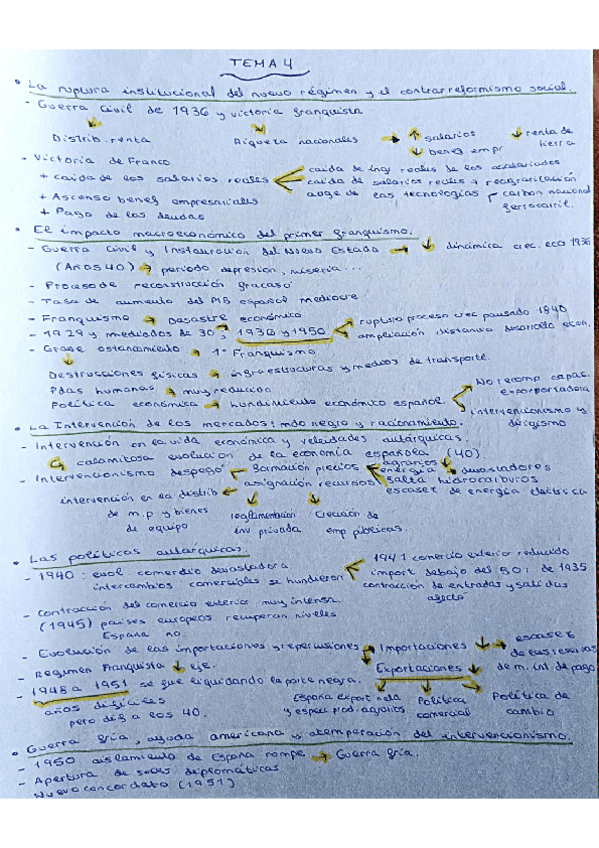 TEMA 4
• La ruptura institucional del nuevo régimen y el contrarreformismo social.
- Guerra Civil de 1936 y victoria franquista
Distrib. renta Riqueza nacionales → ↑ salarios ↓ renta de tierra
↓ benef empr
- Victoria de Franco
+ caída de los salarios reales caída de ing reales de los asalariados
caída de salarios reales → reagrarización
auge de las tecnologías - carbon nacional
ferrocarril.
+ Ascenso benef empresariales
+ Pago de las deudas
• El impacto macroeconómico del primer franquismo.
- Guerra Civil y Instauración del Nuevo Estado → ↓ dinámica crec. eco 1936
(Años 40) → periodo depresión, miseria...
- Proceso de reconstrucción fracaso
- Tasa de aumento del español mediocre
- Franquismo → Desastre económico
- 1929 y mediados de 30; 1936 y 1950 ruptura proceso crec pausado 1840
ampliación distancia desarrollo econ.
- Grave estancamiento → 1º Franquismo
Destrucciones físicas → infraestructuras y medios de transporte.
Pdas humanas → muy reducido
Política económica → hundimiento económico español. No recomp capac. exportadora
intervencionismo y dirigismo
• La Intervención de los mercados: mdo negro y racionamiento.
- Intervención en la vida económica y veleidades autárquicas.
↳ calamitosa evolución de la economía española (40)
- Intervencionismo despegó formación precios agrarios ↓
energía → devastadores
asignación recursos falta hidrocarburos
escasez de energía eléctrica
intervención en la distrib de m.p y bienes de equipo
reglamentación inv privada
Creación de emp públicas.
• Las políticas autárquicas
- 1940: evol comercio devastadora
intercambios comerciales se hundieron
1941 comercio exterior reducido
import debajo del 50% de 1935
contracción de entradas y salidas
afectó
- Contracción del comercio exterior muy intensa.
(1945) países europeos recuperan niveles
España no.
- Evolución de las importaciones y repercusiones → Importaciones ↓ → escasez de las reservas de m. int de pago
- Régimen Franquista ↓ eje. Exportaciones ↓
- 1948 a 1951 se fue liquidando la parte negra.
años difíciles
pero dif a los 40.
España export nada y especi prod. agrarios
Política comercial
Política de cambio
• Guerra fría, ayuda americana y atemperación del intervencionismo.
- 1950 aislamiento de España rompe → Guerra fría.
- Apertura de sedes diplomáticas
Nuevo concordato (1951)